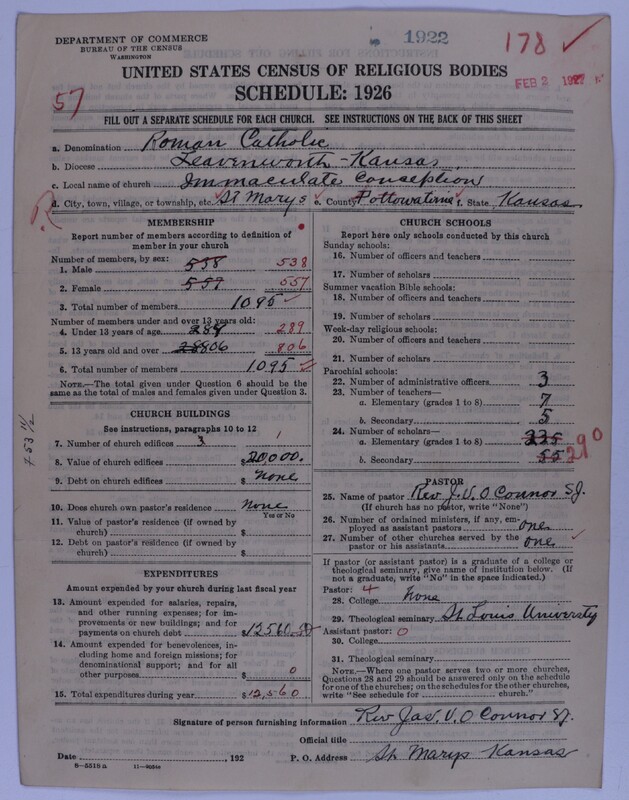 DEPARTMENT OF COMMERCE
BUREAU OF THE CENSUS
WASHINGTON
1922
178 ✓
FEB 2
57
UNITED STATES CENSUS OF RELIGIOUS BODIES
SCHEDULE: 1926
FILL OUT A SEPARATE SCHEDULE FOR EACH CHURCH. SEE INSTRUCTIONS ON THE BACK OF THIS SHEET
a. Denomination Roman Catholic
b. Diocese Leavenworth-Kansas
c. Local name of church Immaculate Conception
d. City, town, village, or township, etc. St Marys e. County Pottowatomie f. State Kansas
R
MEMBERSHIP
Report number of members according to definition of member in your church
Number of members, by sex:
1. Male 538 538
2. Female 557 557
3. Total number of members 1095 ✓
Number of members under and over 13 years old:
4. Under 13 years of age 289 289
5. 13 years old and over 806 806
6. Total number of members 1095
NOTE.—The total given under Question 6 should be the same as the total of males and females given under Question 3.
CHURCH BUILDINGS
See instructions, paragraphs 10 to 12
7. Number of church edifices 3 1
8. Value of church edifices $20000.
9. Debt on church edifices $ None
10. Does church own pastor's residence None
Yes or No
11. Value of pastor's residence (if owned by church) $
12. Debt on pastor's residence (if owned by church) $
EXPENDITURES
Amount expended by your church during last fiscal year
13. Amount expended for salaries, repairs, and other running expenses; for improvements or new buildings; and for payments on church debt $12560.
14. Amount expended for benevolences, including home and foreign missions; for denominational support; and for all other purposes $ 0
15. Total expenditures during year $12,560
CHURCH SCHOOLS
Report here only schools conducted by this church
Sunday schools:
16. Number of officers and teachers
17. Number of scholars
Summer vacation Bible schools:
18. Number of officers and teachers
19. Number of scholars
Week-day religious schools:
20. Number of officers and teachers
21. Number of scholars
Parochial schools:
22. Number of administrative officers 3
23. Number of teachers—
a. Elementary (grades 1 to 8) 7
b. Secondary 5
24. Number of scholars—
a. Elementary (grades 1 to 8) 235
b. Secondary 55 290
PASTOR
25. Name of pastor Rev J. V. O Connor SJ.
(If church has no pastor, write "None")
26. Number of ordained ministers, if any, employed as assistant pastors one
27. Number of other churches served by the pastor or his assistants one ✓
If pastor (or assistant pastor) is a graduate of a college or theological seminary, give name of institution below. (If not a graduate, write "No" in the space indicated.)
Pastor: 4
28. College None
29. Theological seminary St Louis University
Assistant pastor: 0
30. College
31. Theological seminary
NOTE.—Where one pastor serves two or more churches, Questions 28 and 29 should be answered only on the schedule for one of the churches; on the schedules for the other churches, write "See schedule for church."
Signature of person furnishing information Rev Jas. V. O Connor SJ.
Official title
Date , 192 P. O. Address St Marys Kansas
8—5518a